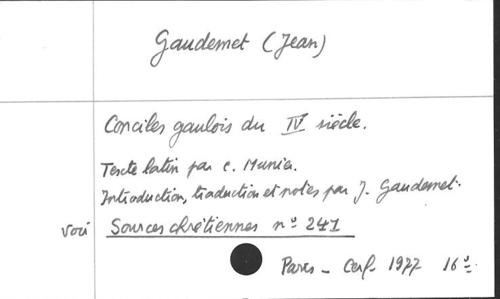 Gaudemet (Jean)
Conciles gaulois du IV siècle.
Texte latin par C. Munier.
Introduction, traduction et notes par J. Gaudemet.
voir Sources chrétiennes nº 241
Paris - Cerf - 1977 16º